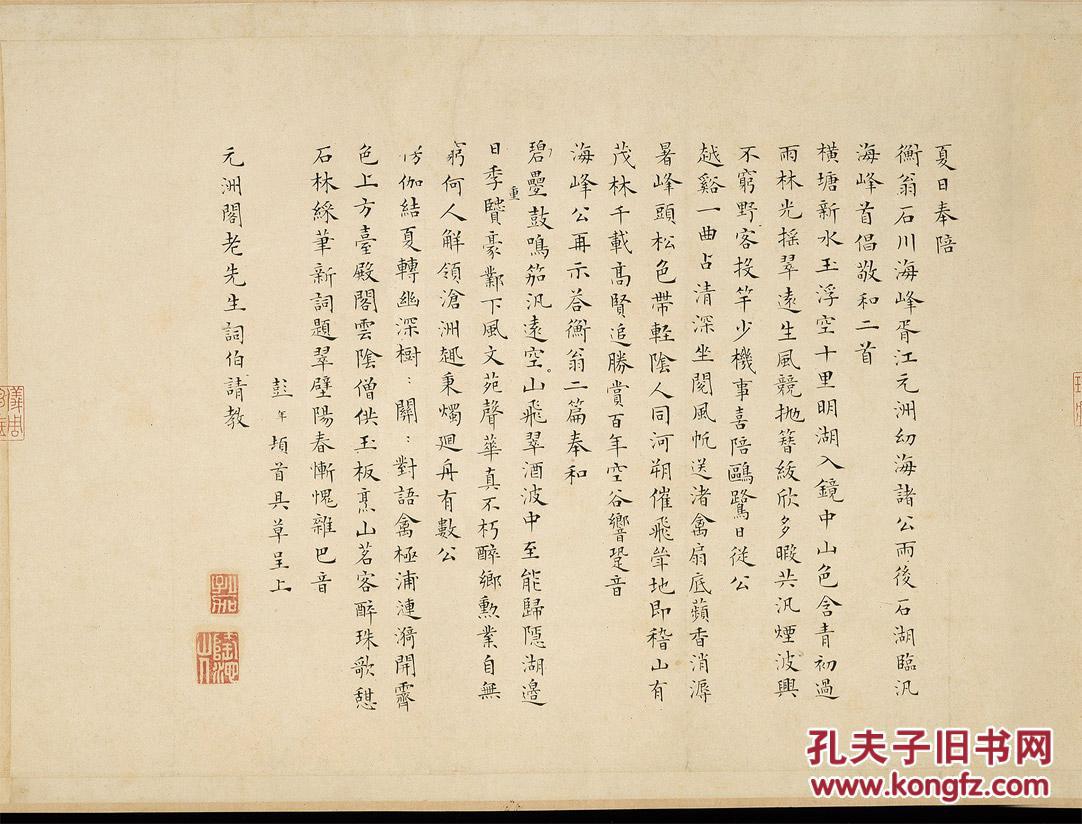 夏日奉陪
衡翁石川海峰胥江元洲幼海諸公雨後石湖臨汎
海峰首倡敬和二首
橫塘新水玉浮空十里明湖入鏡中山色含青初過
雨林光揺翠遠生風競抛簪紱欣多暇共汎煙波興
不窮野客投竿少機事喜陪鷗鷺日從公
越谿一曲占清深坐閱風帆送渚禽扇底蘋香消溽
暑峰頭松色帶輕陰人同河朔催飛斝地即稽山有
茂林千載髙賢追勝賞百年空谷響跫音
海峰公再示荅衡翁二篇奉和
碧疊鼓鳴笳汎遠空山飛翠酒波中至能歸隱湖邊
日季重豪鄴下風文苑聲華真不朽醉鄉勲業自無
窮何人解領滄洲趣秉燭廻舟有數公
伽結夏轉幽深樹:關:對語禽極浦漣漪開霽
色上方臺殿閣雲陰僧供玉板烹山茗客醉珠歌憇
石林綵筆新詞題翠壁陽春慚愧雜巴音
彭年頓首具草呈上
元洲閣老先生詞伯請教
孔夫子旧书网
www.kongfz.com